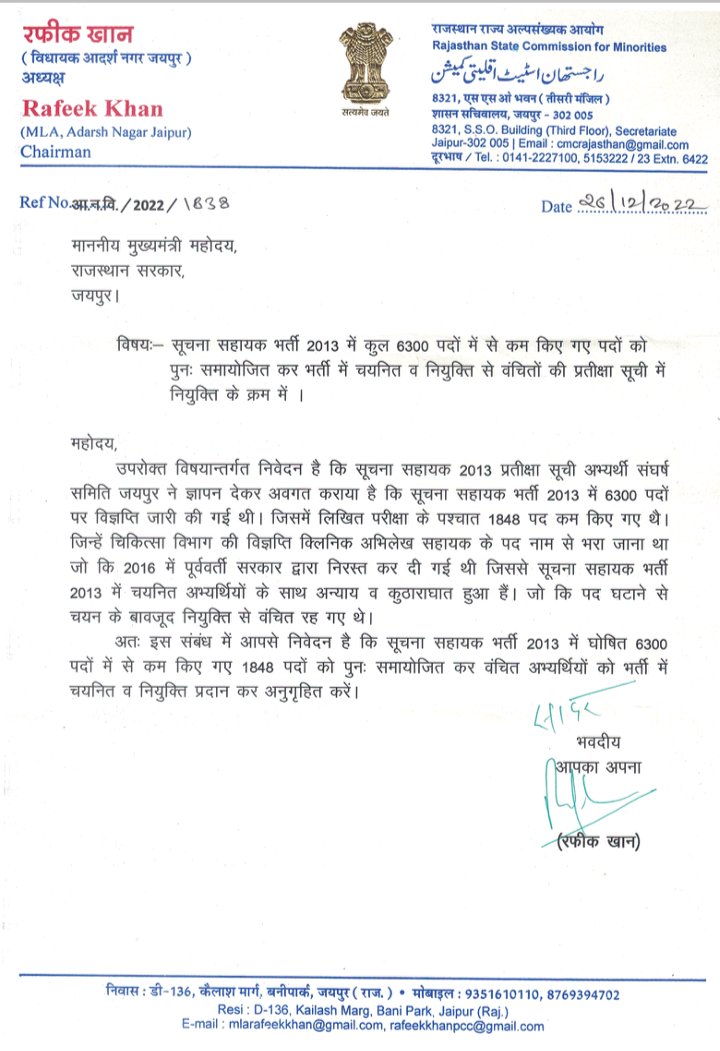 रफीक खान
( विधायक आदर्श नगर जयपुर )
अध्यक्ष
Rafeek Khan
(MLA, Adarsh Nagar Jaipur)
Chairman
सत्यमेव जयते
राजस्थान राज्य अल्पसंख्यक आयोग
Rajasthan State Commission for Minorities
راجستھان اسٹیٹ اقلیتی کمیشن
8321, एस एस ओ भवन ( तीसरी मंजिल )
शासन सचिवालय, जयपुर - 302 005
8321, S.S.O. Building (Third Floor), Secretariate
Jaipur-302 005 | Email : cmcrajasthan@gmail.com
दूरभाष / Tel. : 0141-2227100, 5153222 / 23 Extn. 6422
Ref No. आ.न.वि. / 2022 / 1838
Date 26/12/2022
माननीय मुख्यमंत्री महोदय,
राजस्थान सरकार,
जयपुर।
विषयः– सूचना सहायक भर्ती 2013 में कुल 6300 पदों में से कम किए गए पदों को
पुनः समायोजित कर भर्ती में चयनित व नियुक्ति से वंचितों की प्रतीक्षा सूची में
नियुक्ति के क्रम में ।
महोदय,
उपरोक्त विषयान्तर्गत निवेदन है कि सूचना सहायक 2013 प्रतीक्षा सूची अभ्यर्थी संघर्ष
समिति जयपुर ने ज्ञापन देकर अवगत कराया है कि सूचना सहायक भर्ती 2013 में 6300 पदों
पर विज्ञप्ति जारी की गई थी। जिसमें लिखित परीक्षा के पश्चात 1848 पद कम किए गए थै।
जिन्हें चिकित्सा विभाग की विज्ञप्ति क्लिनिक अभिलेख सहायक के पद नाम से भरा जाना था
जो कि 2016 में पूर्ववर्ती सरकार द्वारा निरस्त कर दी गई थी जिससे सूचना सहायक भर्ती
2013 में चयनित अभ्यर्थियों के साथ अन्याय व कुठाराघात हुआ हैं। जो कि पद घटाने से
चयन के बावजूद नियुक्ति से वंचित रह गए थे।
अतः इस संबंध में आपसे निवेदन है कि सूचना सहायक भर्ती 2013 में घोषित 6300
पदों में से कम किए गए 1848 पदों को पुनः समायोजित कर वंचित अभ्यर्थियों को भर्ती में
चयनित व नियुक्ति प्रदान कर अनुग्रहित करें।
सादर
भवदीय
आपका अपना
(रफीक खान)
निवास : डी-136, कैलाश मार्ग, बनीपार्क, जयपुर ( राज. ) • मोबाइल : 9351610110, 8769394702
Resi : D-136, Kailash Marg, Bani Park, Jaipur (Raj.)
E-mail : mlarafeekkhan@gmail.com, rafeekkhanpcc@gmail.com